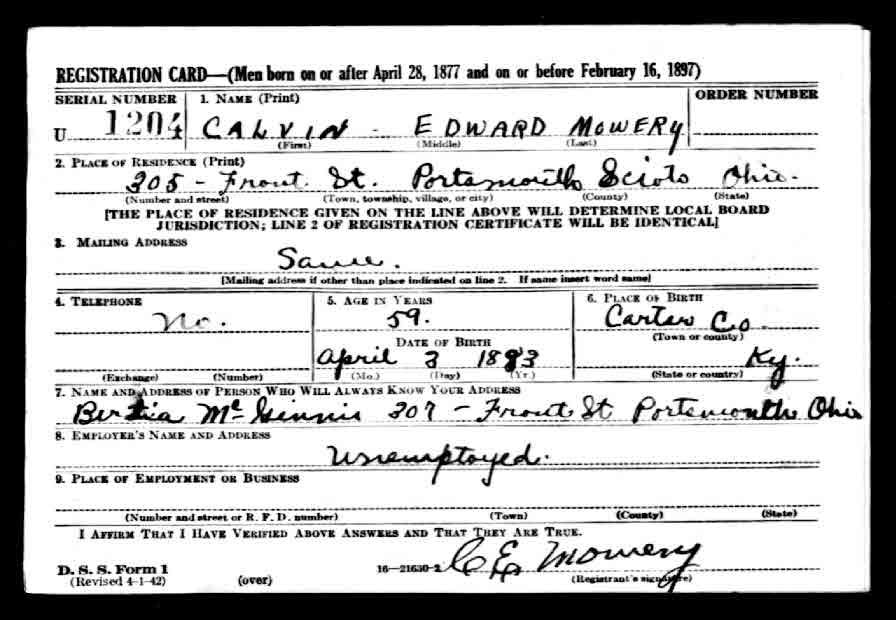 REGISTRATION CARD—(Men born on or after April 28, 1877 and on or before February 16, 1897)
SERIAL NUMBER 1. NAME (Print) ORDER NUMBER
U 1204 CALVIN - EDWARD MOWERY
(First) (Middle) (Last)
2. PLACE OF RESIDENCE (Print)
305 - Front St. Portsmouth Scioto Ohio.
(Number and street) (Town, township, village, or city) (County) (State)
[THE PLACE OF RESIDENCE GIVEN ON THE LINE ABOVE WILL DETERMINE LOCAL BOARD
JURISDICTION; LINE 2 OF REGISTRATION CERTIFICATE WILL BE IDENTICAL]
3. MAILING ADDRESS
Same.
[Mailing address if other than place indicated on line 2. If same insert word same]
4. TELEPHONE 5. AGE IN YEARS 6. PLACE OF BIRTH
No. 59. Carter Co.
(Town or county)
DATE OF BIRTH
April 3 1883 Ky.
(Exchange) (Number) (Mo.) (Day) (Yr.) (State or country)
7. NAME AND ADDRESS OF PERSON WHO WILL ALWAYS KNOW YOUR ADDRESS
Mc Ginnis 307 - Front St Portsmouth Ohio
8. EMPLOYER'S NAME AND ADDRESS
Unemployed.
9. PLACE OF EMPLOYMENT OR BUSINESS
(Number and street or R. F. D. number) (Town) (County) (State)
I AFFIRM THAT I HAVE VERIFIED ABOVE ANSWERS AND THAT THEY ARE TRUE.
D. S. S. Form 1 C E Mowery
(Revised 4-1-42) (over) 16—21630-2 (Registrant's signature)